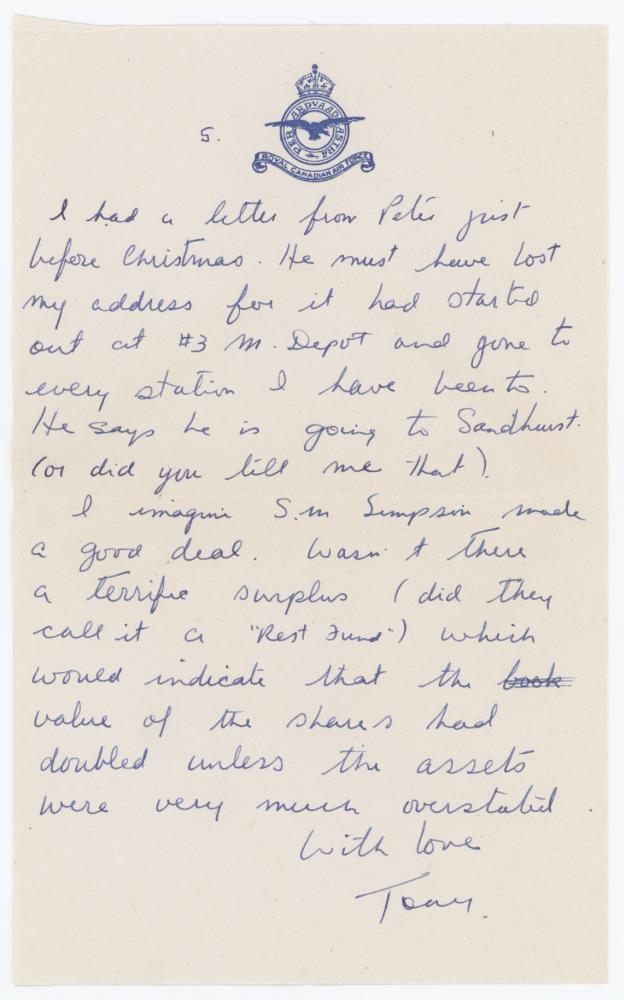 PER ARDVA AD ASTRA
ROYAL CANADIAN AIR FORCE
5.
I had a letter from Peter just
before Christmas. He must have lost
my address for it had started
out at #3 M. Depot and gone to
every station I have been to.
He says he is going to Sandhurst.
(or did you tell me that).
I imagine S.M. Simpson made
a good deal. Wasn't there
a terrific surplus (did they
call it a "Rest Fund") which
would indicate that the book
value of the shares had
doubled unless the assets
were very much overstated.
With love
Tony.